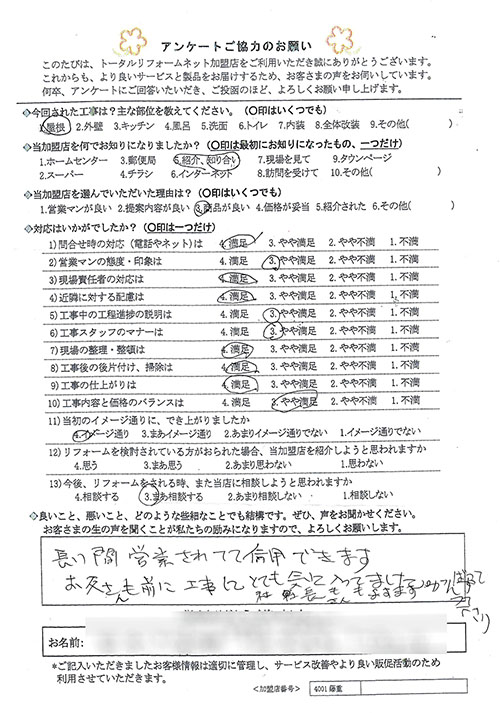 アンケートご協力のお願い
このたびは、トータルリフォームネット加盟店をご利用いただき誠にありがとうございます。
これからも、より良いサービスと製品をお届けするため、お客さまの声をお伺いしています。
何卒、アンケートにご回答いただき、ご投函のほど、よろしくお願い申し上げます。
◆今回された工事は?主な部位を教えてください。(〇印はいくつでも)
1.屋根 2.外壁 3.キッチン 4.風呂 5.洗面 6.トイレ 7.内装 8.全体改装 9.その他( )
◆当加盟店を何でお知りになりましたか?(〇印は最初にお知りになったもの、一つだけ)
1.ホームセンター 3.郵便局 5.紹介、知り合い 7.現場を見て 9.タウンページ
2.スーパー 4.チラシ 6.インターネット 8.訪問を受けて 10.その他( )
◆当加盟店を選んでいただいた理由は?(〇印はいくつでも)
1.営業マンが良い 2.提案内容が良い 3.商品が良い 4.価格が妥当 5.紹介された 6.その他( )
◆対応はいかがでしたか?(〇印は一つだけ)
1)問合せ時の対応(電話やネット)は 4.満足 3.やや満足 2.やや不満 1.不満
2)営業マンの態度・印象は 4.満足 3.やや満足 2.やや不満 1.不満
3)現場責任者の対応は 4.満足 3.やや満足 2.やや不満 1.不満
4)近隣に対する配慮は 4.満足 3.やや満足 2.やや不満 1.不満
5)工事中の工程進捗の説明は 4.満足 3.やや満足 2.やや不満 1.不満
6)工事スタッフのマナーは 4.満足 3.やや満足 2.やや不満 1.不満
7)現場の整理・整頓は 4.満足 3.やや満足 2.やや不満 1.不満
8)工事後の後片付け、掃除は 4.満足 3.やや満足 2.やや不満 1.不満
9)工事の仕上がりは 4.満足 3.やや満足 2.やや不満 1.不満
10)工事内容と価格のバランスは 4.満足 3.やや満足 2.やや不満 1.不満
11)当初のイメージ通りに、でき上がりましたか
4.イメージ通り 3.まあイメージ通り 2.あまりイメージ通りでない 1.イメージ通りでない
12)リフォームを検討されている方がおられた場合、当加盟店を紹介しようと思われますか
4.思う 3.まあ思う 2.あまり思わない 1.思わない
13)今後、リフォームをされる時、また当店に相談しようと思われますか
4.相談する 3.まあ相談する 2.あまり相談しない 1.相談しない
◆良いこと、悪いこと、どのような些細なことでも結構です。ぜひ、声をお聞かせください。
お客さまの生の声を聞くことが私たちの励みになりますので、よろしくお願いします。
長い間営業されてて信用できます
お父さんも前に工事してとても気に入ってました
社長さんも
お名前:
*ご記入いただきましたお客様情報は適切に管理し、サービス改善やより良い販促活動のため
利用させていただきます。
<加盟店番号> 4001 藤重